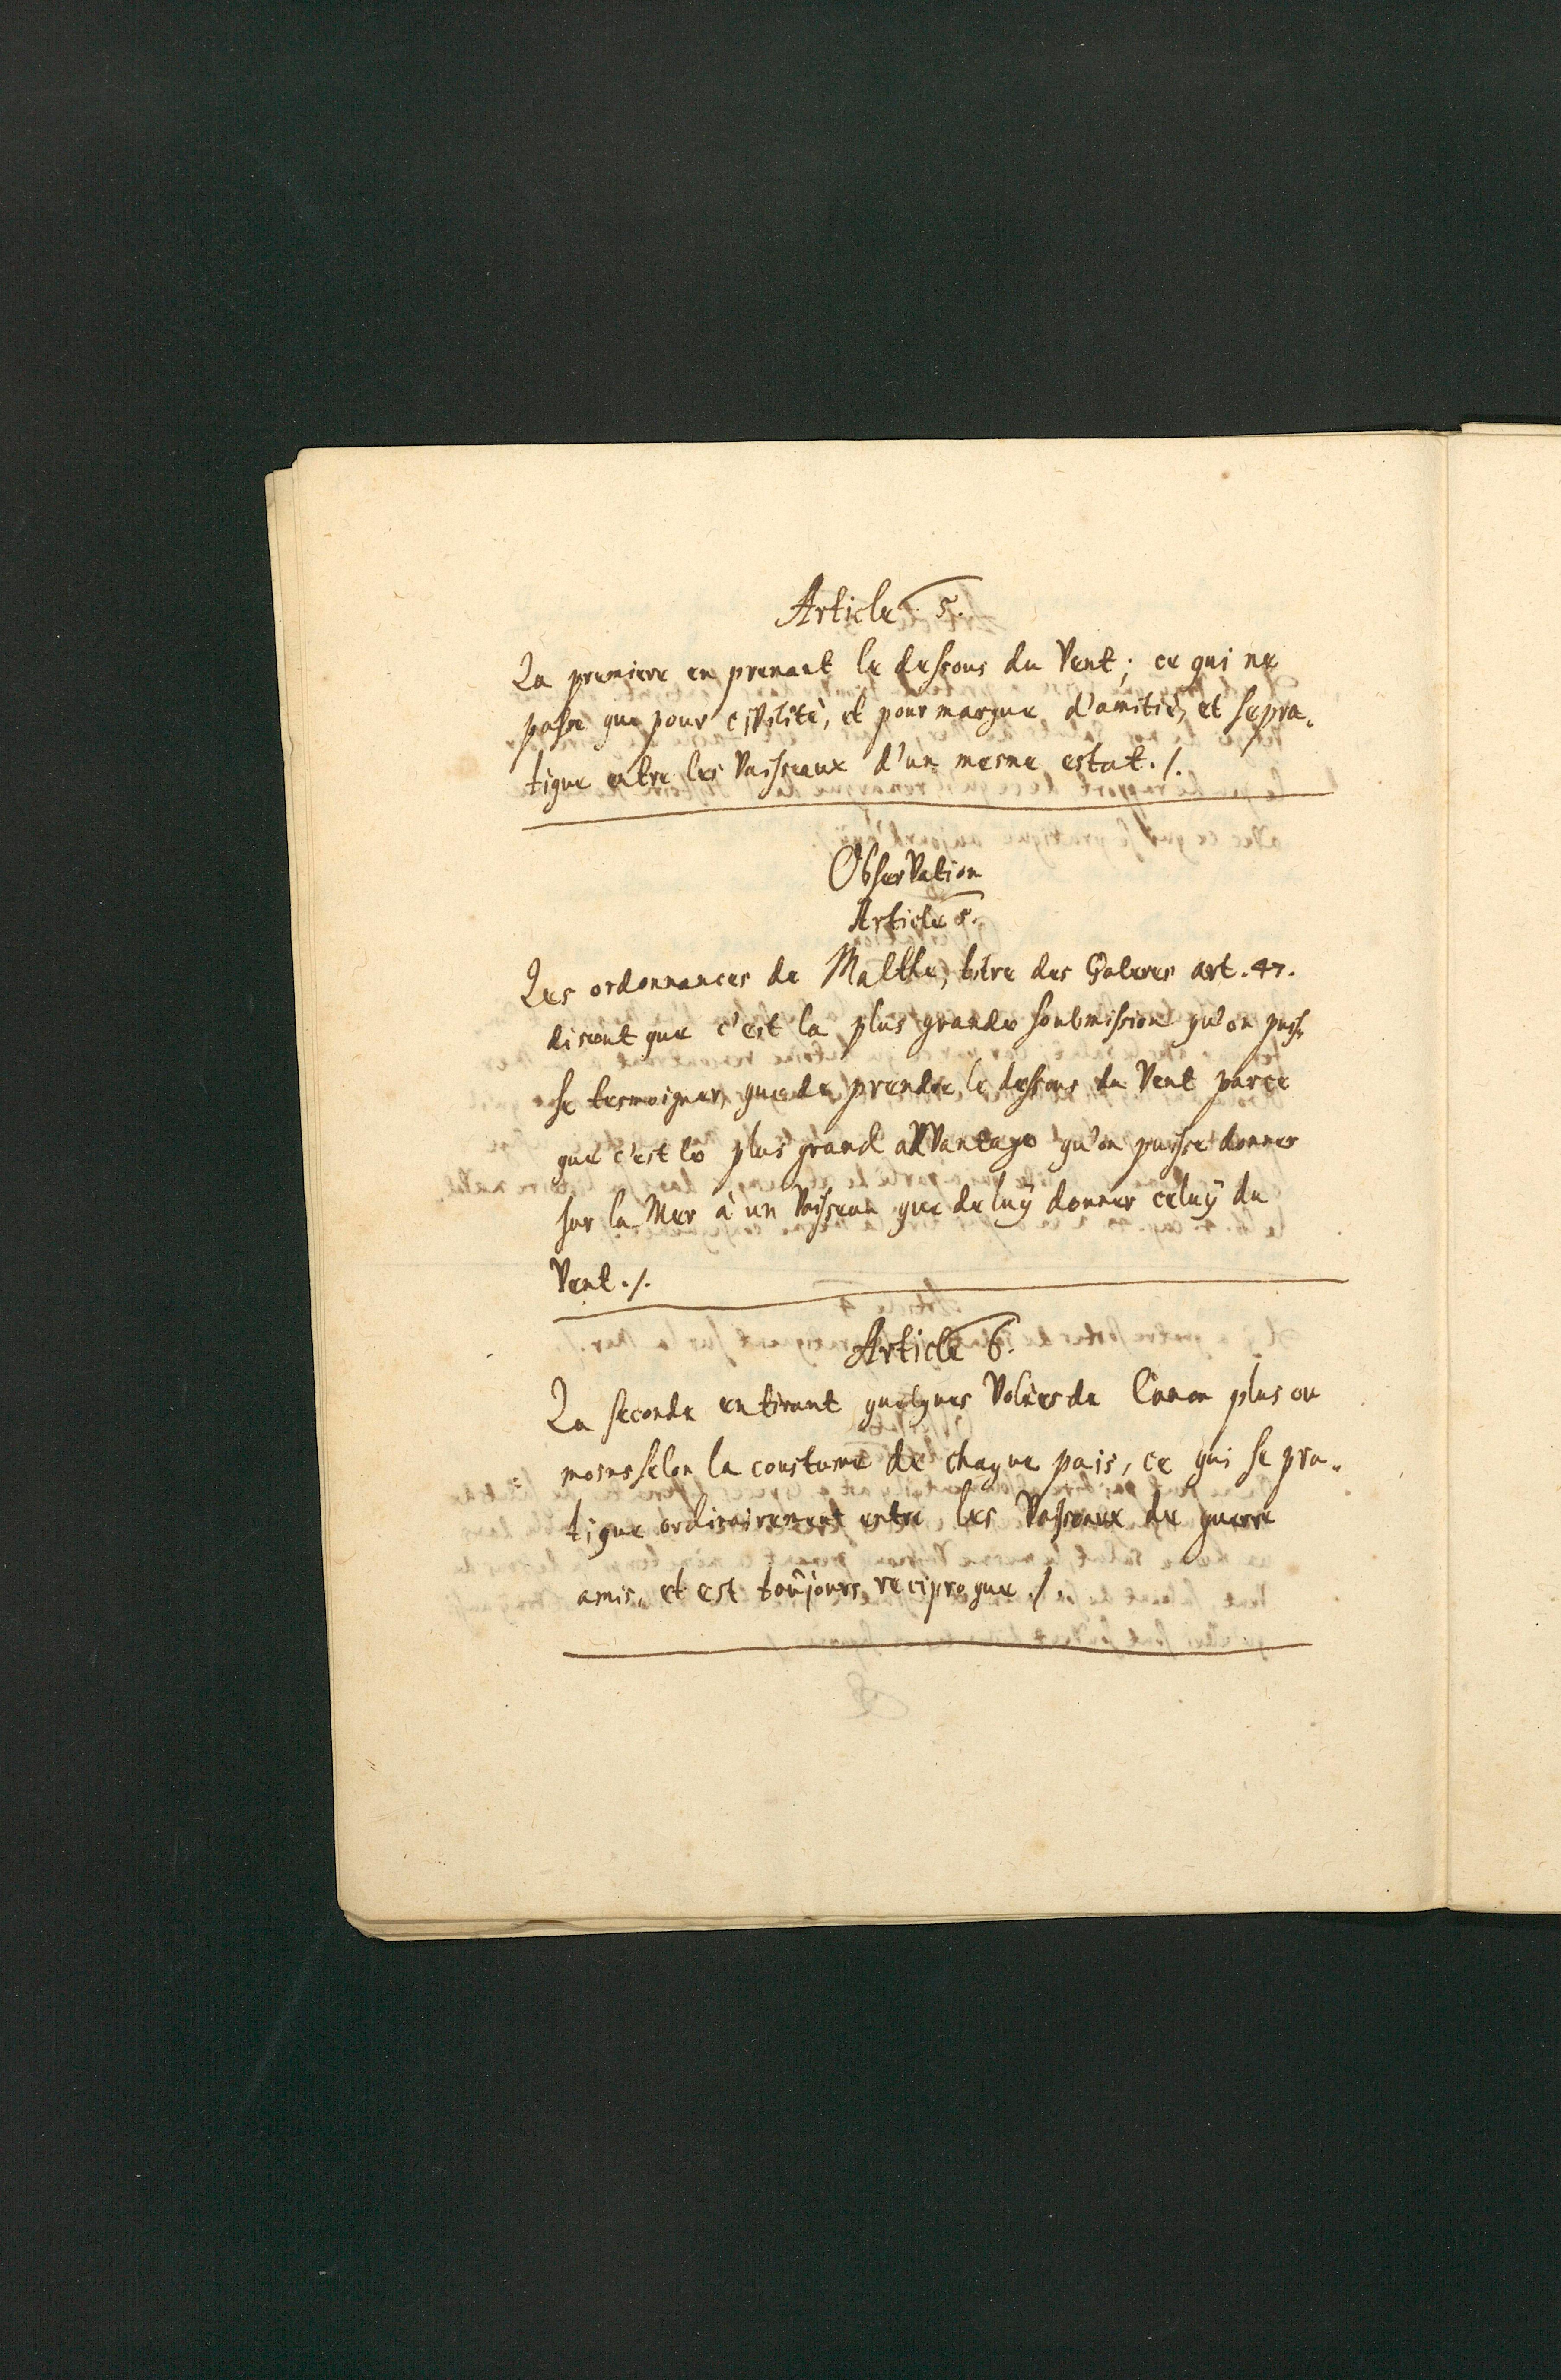 Article 5.
La premiere en prenant le dessous du Vent; ce qui ne
passe que pour ciVilité, et pour marque d'amitié, et se pra„
tique entre les Vaisseaux d'un mesme estat./.
ObserVation
Article 5.
Les ordonnances de Malthe, titre des Galeres art. 47.
disent que c'est la plus grande soubmission qu'on puis„
se tesmoigner, que de prendre le dessous du Vent parce
que c'est le plus grand adVantage qu'on puisse donner
sur la Mer à un Vaisseau que de luÿ donner celuÿ du
Vent./.
Article 6.
La seconde en tirant quelques Volées de Canon plus ou
moins selon la coustume de chaque pais, ce qui se pra„
tique ordinairement entre les Vaisseaux de guerre
amis, et est toûjours reciproque./.